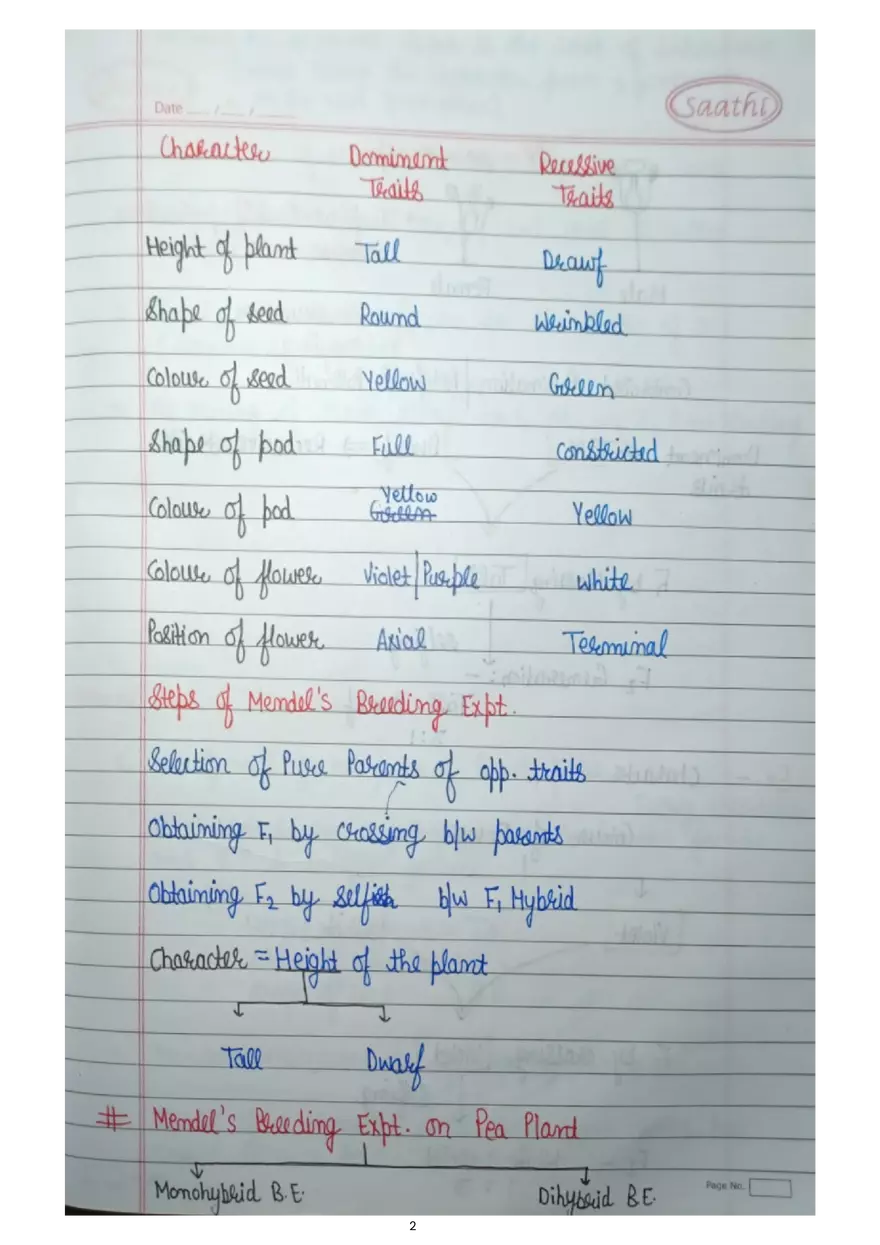 Date __ / __ / ____
Saathi
Character Dominent Traits Recessive Traits
Height of plant Tall Drawf
Shape of seed Round Wrinkled
Colour of seed Yellow Green
Shape of pod Full Constricted
Colour of pod Yellow Green Yellow
Colour of flower Violet|Purple white
Position of flower Axial Terminal
Steps of Mendel's Breeding Expt.
Selection of Pure Parents of opp. traits
Obtaining F₁ by crossing b/w parents
Obtaining F₂ by b/w F₁ Hybrid
Character = Height of the plant
Tall Dwarf
# Mendel's Breeding Expt. on Pea Plant
Monohybrid B.E. Dihybrid B.E.
Page No.
2